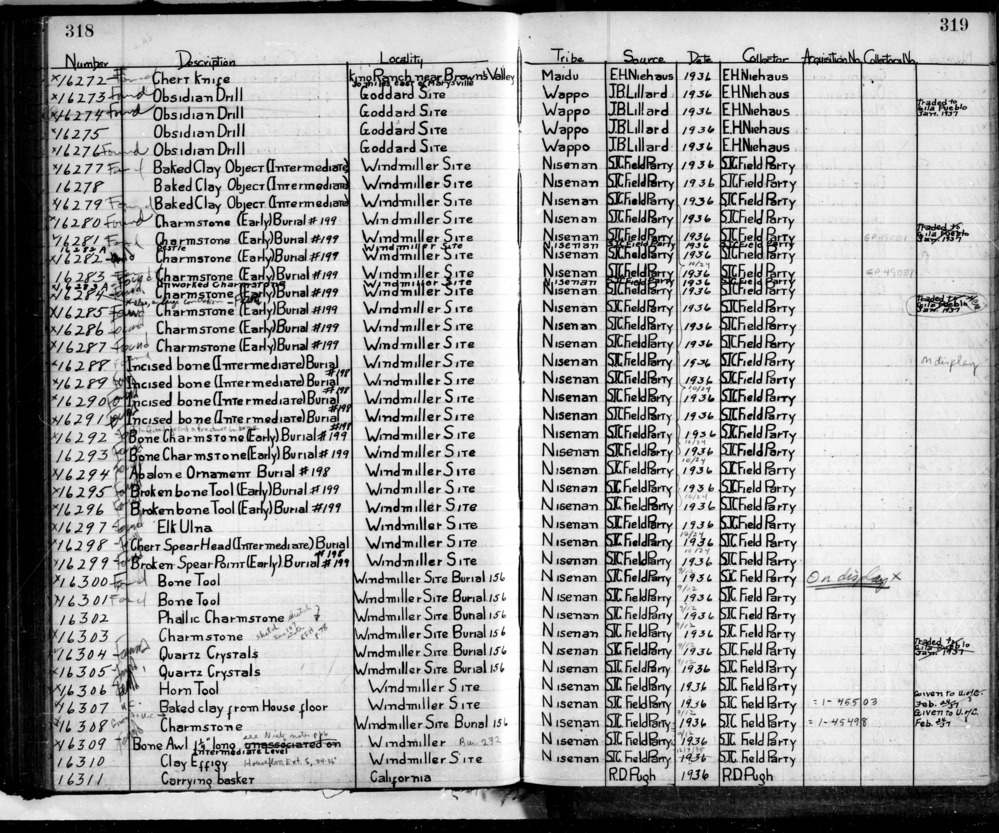 318
319
Number Description Locality Tribe Source Date Collector Acquisition No. Collectors No.
x16272 Found Chert Knife King Ranch near Brown's Valley Maidu E.H.Niehaus 1936 E.H.Niehaus
x16273 Found Obsidian Drill Goddard Site Wappo J.B.Lillard 1936 E.H.Niehaus
x16274 Found Obsidian Drill Goddard Site Wappo J.B.Lillard 1936 E.H.Niehaus Traded to Gila Pueblo Jan. 1937
x16275 Obsidian Drill Goddard Site Wappo J.B.Lillard 1936 E.H.Niehaus
x16276 Found Obsidian Drill Goddard Site Wappo J.B.Lillard 1936 E.H.Niehaus
x16277 Found Baked Clay Object (Intermediate) Windmiller Site Nisenan SJC Field Party 1936 SJC Field Party
16278 Baked Clay Object (Intermediate) Windmiller Site Nisenan SJC Field Party 1936 SJC Field Party
x16279 Found Baked Clay Object (Intermediate) Windmiller Site Nisenan SJC Field Party 1936 SJC Field Party
x16280 Found Charmstone (Early) Burial #199 Windmiller Site Nisenan SJC Field Party 1936 SJC Field Party
x16281 Found Charmstone (Early) Burial #199 Windmiller Site Nisenan SJC Field Party 1936 SJC Field Party Traded to Gila Pueblo Jan. 1937
16282A Pestle Windmiller Site Nisenan SJC Field Party 1936 SJC Field Party
x16282 Charmstone (Early) Burial #199 Windmiller Site Nisenan SJC Field Party 1936 SJC Field Party
16283 Found Charmstone (Early) Burial #199 Windmiller Site Nisenan SJC Field Party 1936 SJC Field Party
x16283A Unworked Charmstone Windmiller Site Nisenan SJC Field Party 1936 SJC Field Party
x16284 Found Charmstone (Early) Burial #199 Windmiller Site Nisenan SJC Field Party 1936 SJC Field Party
x16285 Found Charmstone (Early) Burial #199 Windmiller Site Nisenan SJC Field Party 1936 SJC Field Party Traded to Gila Pueblo Jan. 1937
x16286 found Charmstone (Early) Burial #199 Windmiller Site Nisenan SJC Field Party 1936 SJC Field Party
x16287 Found Charmstone (Early) Burial #199 Windmiller Site Nisenan SJC Field Party 1936 SJC Field Party
x16288 Incised bone (Intermediate) Burial #198 Windmiller Site Nisenan SJC Field Party 1936 SJC Field Party On display
x16289 Incised bone (Intermediate) Burial #198 Windmiller Site Nisenan SJC Field Party 1936 SJC Field Party
x16290 Incised bone (Intermediate) Burial #198 Windmiller Site Nisenan SJC Field Party 10/24 1936 SJC Field Party
x16291 Incised bone (Intermediate) Burial #198 Windmiller Site Nisenan SJC Field Party 1936 SJC Field Party
x16292 Bone Charmstone (Early) Burial #199 Windmiller Site Nisenan SJC Field Party 1936 SJC Field Party
16293 Bone Charmstone (Early) Burial #199 Windmiller Site Nisenan SJC Field Party 10/24 1936 SJC Field Party
x16294 Abalone Ornament Burial #198 Windmiller Site Nisenan SJC Field Party 10/24 1936 SJC Field Party
x16295 Broken bone Tool (Early) Burial #199 Windmiller Site Nisenan SJC Field Party 1936 SJC Field Party
x16296 Broken bone Tool (Early) Burial #199 Windmiller Site Nisenan SJC Field Party 10/24 1936 SJC Field Party
x16297 Elk Ulna Windmiller Site Nisenan SJC Field Party 1936 SJC Field Party
x16298 Chert Spear Head (Intermediate) Burial #198 Windmiller Site Nisenan SJC Field Party 10/24 1936 SJC Field Party
x16299 Broken Spear Point (Early) Burial #199 Windmiller Site Nisenan SJC Field Party 10/24 1936 SJC Field Party
x16300 Found Bone Tool Windmiller Site Burial 156 Nisenan SJC Field Party 9/12 1936 SJC Field Party On display x
x16301 Found Bone Tool Windmiller Site Burial 156 Nisenan SJC Field Party 9/12 1936 SJC Field Party
16302 Phallic Charmstone sketch Windmiller Site Burial 156 Nisenan SJC Field Party 9/12 1936 SJC Field Party
x16303 Charmstone sketch Windmiller Site Burial 156 Nisenan SJC Field Party 9/12 1936 SJC Field Party
x16304 Found Quartz Crystals Windmiller Site Burial 156 Nisenan SJC Field Party 9/12 1936 SJC Field Party Traded to Gila Pueblo Jan. 1937
x16305 Quartz Crystals Windmiller Site Burial 156 Nisenan SJC Field Party 9/12 1936 SJC Field Party
x16306 Horn Tool Windmiller Site Nisenan SJC Field Party 1936 SJC Field Party
x16307 U.C. Baked clay from House floor Windmiller Site Nisenan SJC Field Party 1936 SJC Field Party = 1-45503 Given to U. of C. Feb. 1937
x16308 Charmstone Windmiller Site Burial 156 Nisenan SJC Field Party 9/12 1936 SJC Field Party = 1-45498 Given to U. of C. Feb. 1937
x16309 Bone Awl 1½" long unassociated on Intermediate Level Windmiller Bur. 232 Nisenan SJC Field Party 1936 SJC Field Party
16310 Clay Effigy Windmiller Site Nisenan SJC Field Party 1936 SJC Field Party
16311 Carrying basket California R.D.Pugh 1936 R.D.Pugh